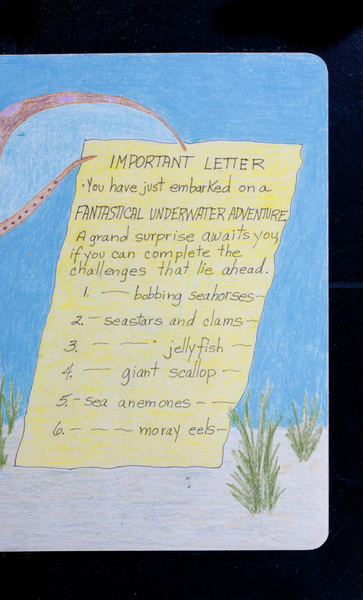 IMPORTANT LETTER
You have just embarked on a
FANTASTICAL UNDERWATER ADVENTURE
A grand surprise awaits you,
if you can complete the
challenges that lie ahead.
1. — bobbing seahorses —
2. — seastars and clams —
3. — — jellyfish —
4. — giant scallop —
5. — sea anemones — —
6. — — — moray eels —